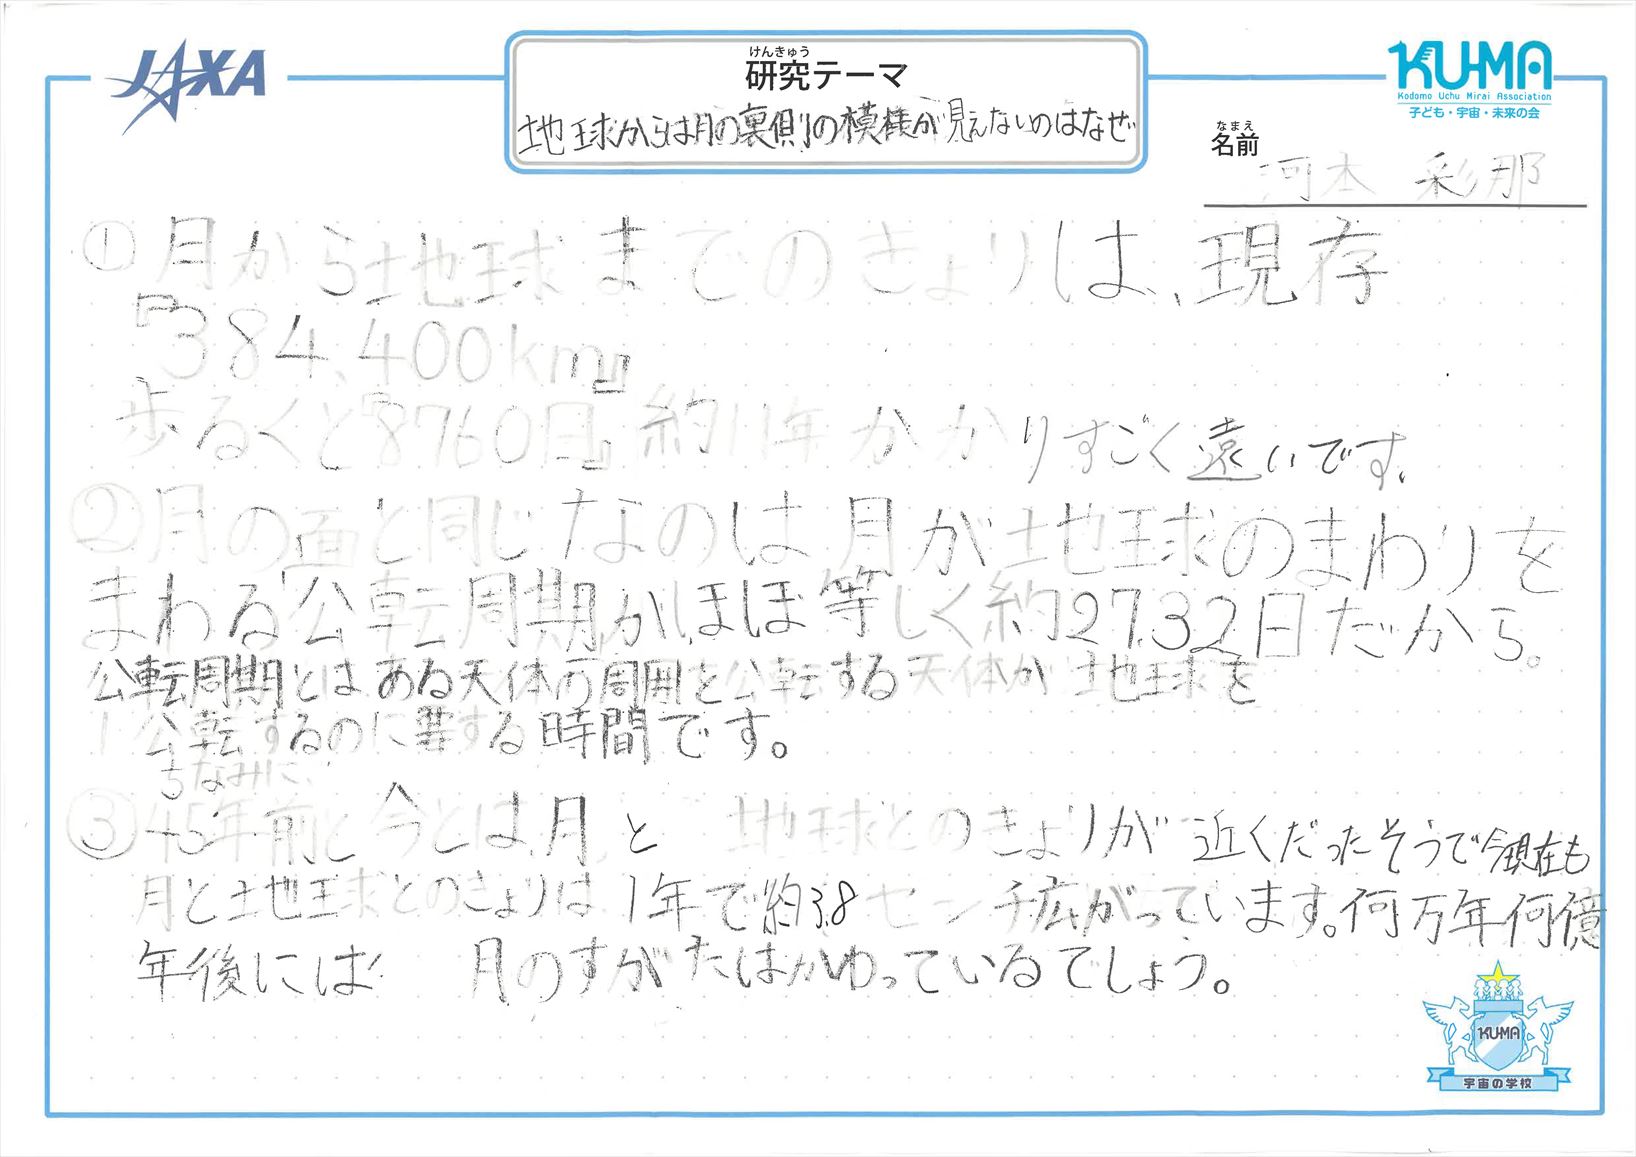 JAXA
けんきゅう
研究テーマ
地球からは月の裏側の模様が見えないのはなぜ
KUMA
Kodomo Uchu Mirai Association
子ども・宇宙・未来の会
なまえ
名前
河本 彩那
①月から地球までのきょりは、現存
『384,400km』
歩るくと『8760日』約11年かかりすごく遠いです。
②月の面と同じなのは月が地球のまわりを
まわる公転周期がほぼ等しく約27.32日だから。
公転周期とはある天体の周囲を公転する天体が地球を
1公転するのに要する時間です。
ちなみに、
③45年前と今とは月と地球とのきょりが近くだったそうで今現在も
月と地球とのきょりは1年で約3.8センチ広がっています。何万年何億
年後には月のすがたはかわっているでしょう。
KUMA
宇宙の学校